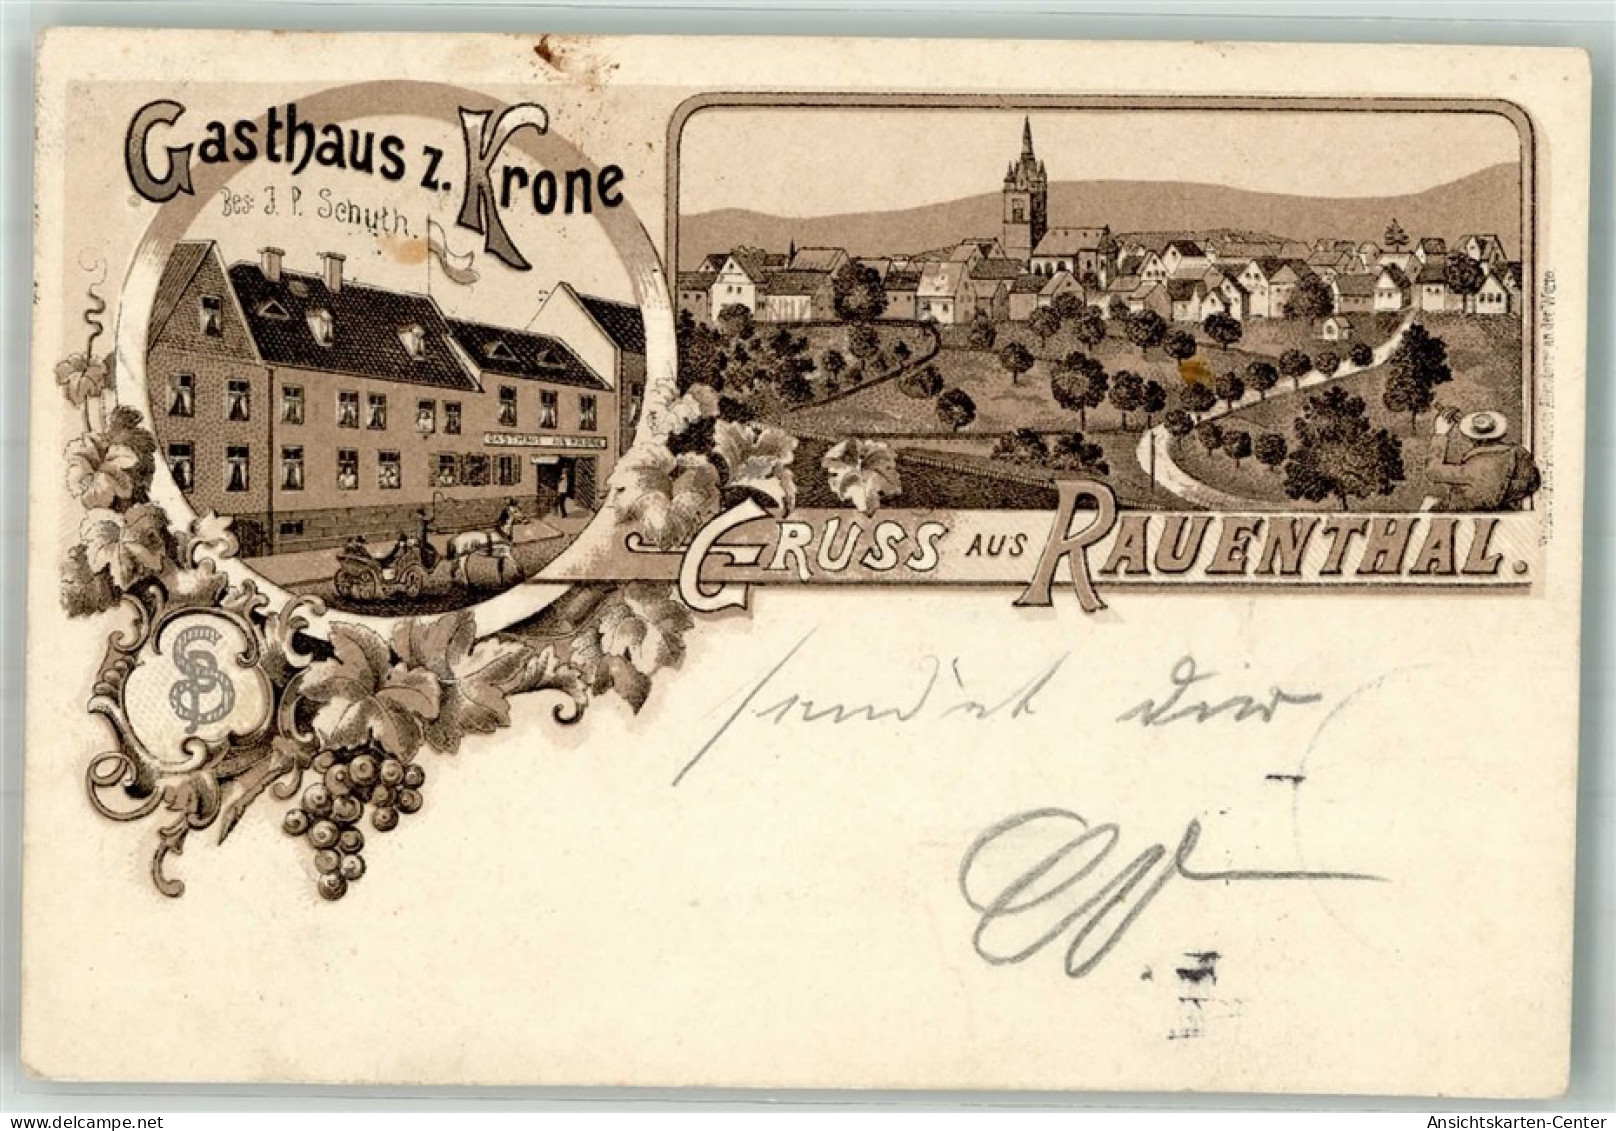 Gasthaus z. Krone
Bes. J. P. Schuth.
GASTHAUS ZUR KRONE
GRUSS AUS RAUENTHAL.
sendet Dir
Ansichtskarten-Center